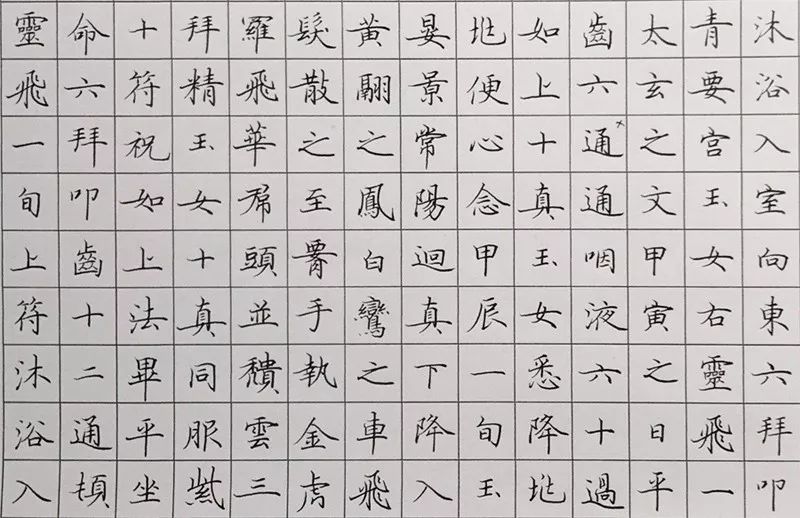 沐浴入室向東六拜叩
青要宫玉女右靈飛一
太玄之文甲寅之日平
齒六通通咽液六十過
如上十真玉女悉降垗
垗便心念甲辰一旬玉
晏景常陽迴真下降入
黃翮之鳳白鸞之車飛
髮散之至手執金虎
羅飛華帬頭並穨雲三
拜精玉女十真同服紫
十符祝如上法畢平坐
命六拜叩齒十二通頓
靈飛一旬上符沐浴入